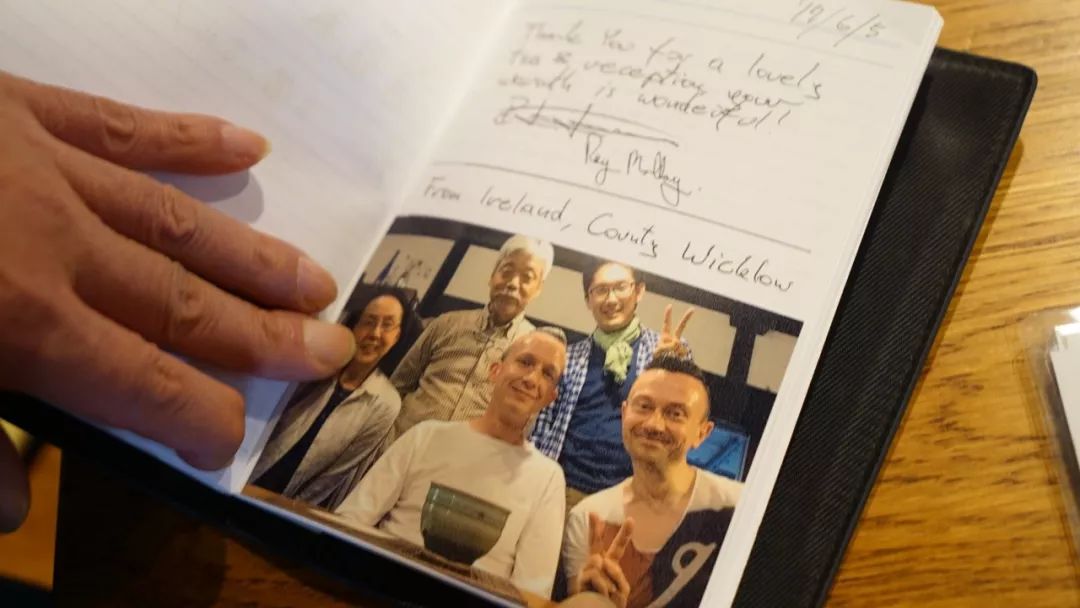 19/6/5
Thank You for a lovely
tea & reception your
work is wonderful!
Ray Molloy.
From Ireland, County Wicklow
g